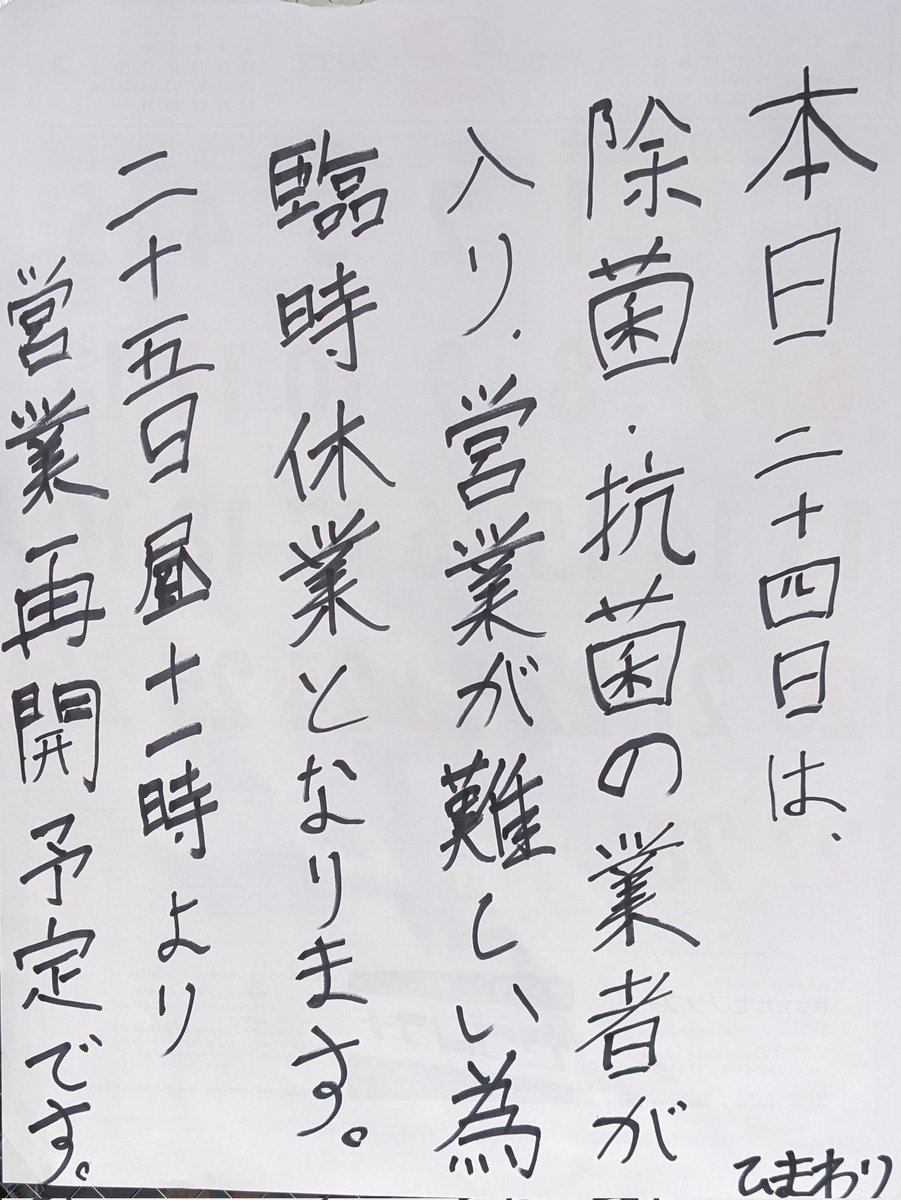 本日二十四日は、
除菌・抗菌の業者が
入り、営業が難しい為
臨時休業となります。
二十五日昼十一時より
営業再開予定です。
ひまわり